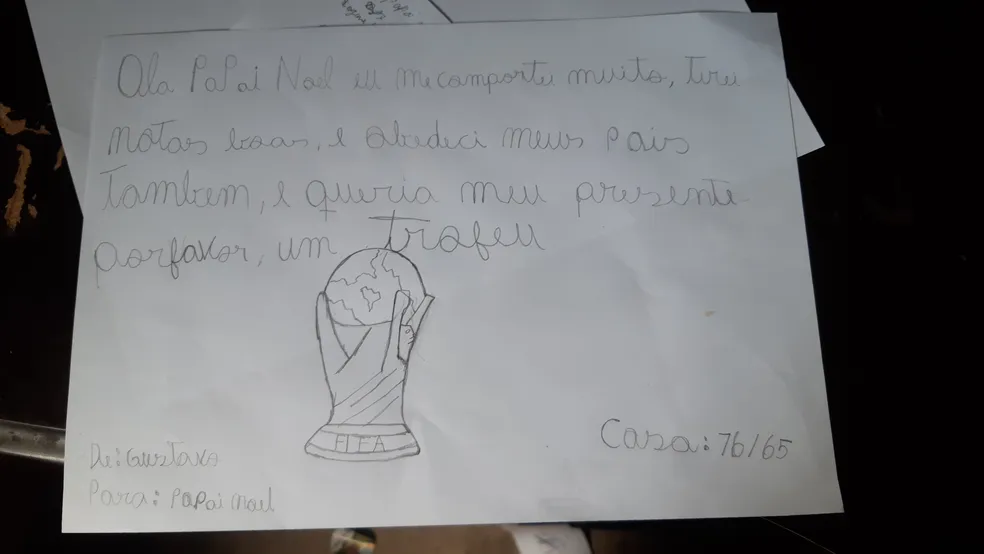 Ola PaPai Noel eu me comporte muito, tirei
notas boas, e obedeci meus pais
Tambem, e queria meu presente
porfavor, um trofeu
FIFA
De: Gustavo
Para: PaPai Noel
Casa: 76/65